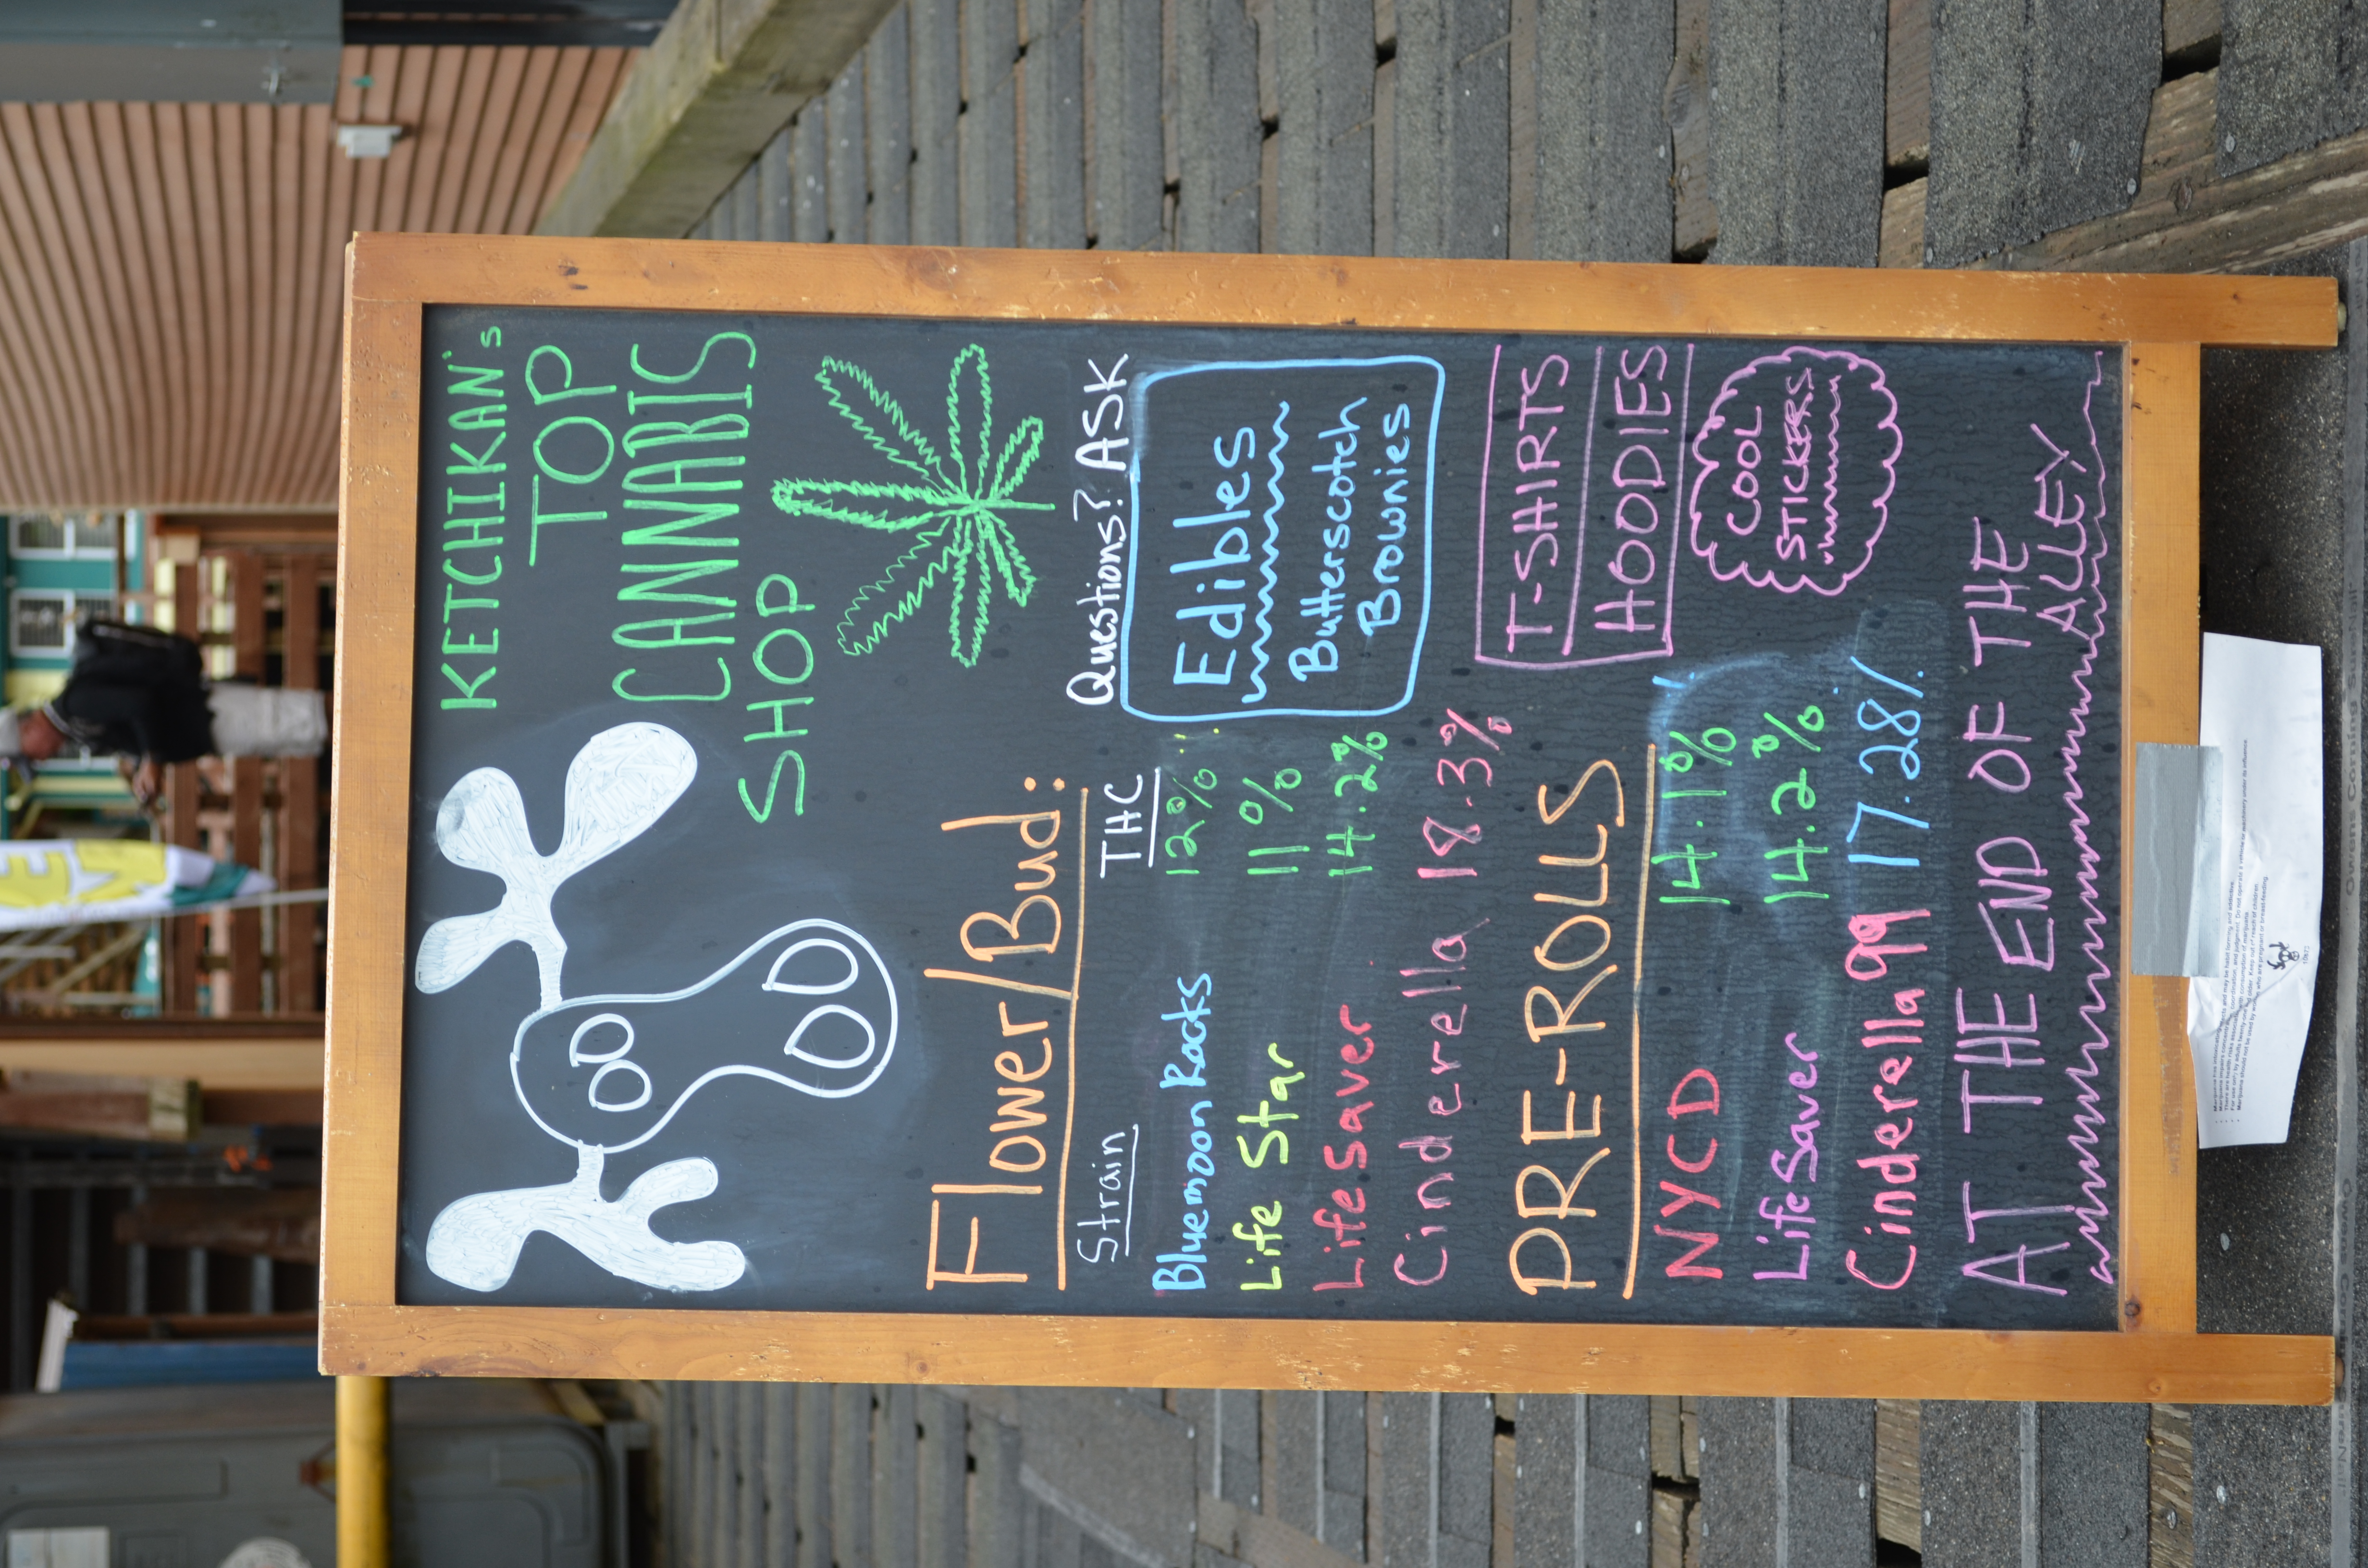 KETCHIKAN's
TOP
CANNABIS
SHOP
Flower/Bud:
Strain THC
Bluemoon Rocks 12%
Life Star 11%
LifeSaver 14.2%
Cinderella 18.3%
Questions? ASK
Edibles
Butterscotch
Brownies
PRE-ROLLS
NYCD 14.1%
LifeSaver 14.2%
Cinderella 99 17.28%
T-SHIRTS
HOODIES
COOL
STICKERS
AT THE END OF THE
ALLEY